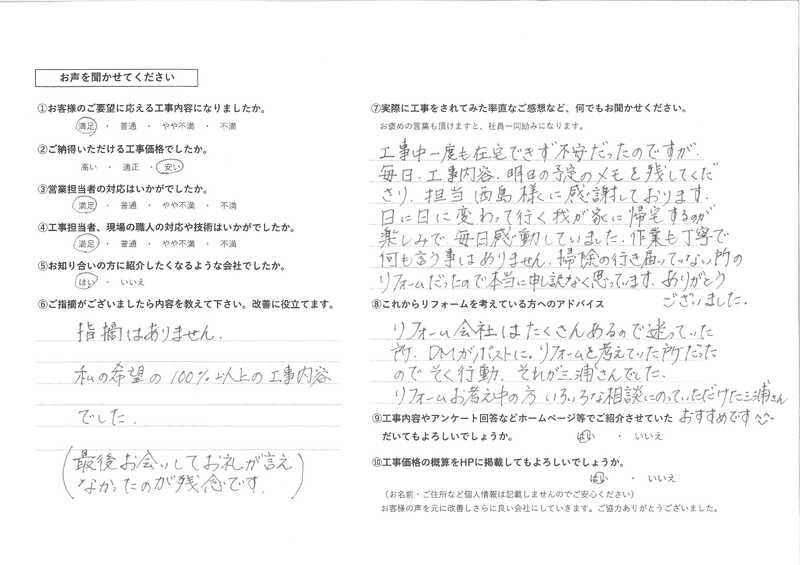 お声を聞かせてください
①お客様のご要望に応える工事内容になりましたか。
満足 ・ 普通 ・ やや不満 ・ 不満
②ご納得いただける工事価格でしたか。
高い ・ 適正 ・ 安い
③営業担当者の対応はいかがでしたか。
満足 ・ 普通 ・ やや不満 ・ 不満
④工事担当者、現場の職人の対応や技術はいかがでしたか。
満足 ・ 普通 ・ やや不満 ・ 不満
⑤お知り合いの方に紹介したくなるような会社でしたか。
はい ・ いいえ
⑥ご指摘がございましたら内容を教えて下さい。改善に役立てます。
指摘はありません.
私の希望の100%以上の工事内容
でした.
(最後お会いしてお礼が言え
なかったのが残念です.)
⑦実際に工事をされてみた率直なご感想など、何でもお聞かせください。
お褒めの言葉も頂けますと、社員一同励みになります。
工事中一度も在宅できず不安だったのですが.
毎日.工事内容.明日の予定のメモを残してくだ
さり.担当 西島様に感謝しております.
日に日に変わって行く我が家に帰宅するのが
楽しみで 毎日感動していました.作業も丁寧で
何も言う事はありません.掃除の行き届いていない所の
リフォームだったので本当に申し訳なく思っています.ありがとう
ございました.
⑧これからリフォームを考えている方へのアドバイス
リフォーム会社はたくさんあるので迷っていた
所.DMがポストに.リフォームを考えていた所だった
のでそく行動.それが三浦さんでした.
リフォームお考え中の方 いろいろな相談にのっていただけた三浦さん
おすすめです
⑨工事内容やアンケート回答などホームページ等でご紹介させていた
だいてもよろしいでしょうか。 はい ・ いいえ
⑩工事価格の概算をHPに掲載してもよろしいでしょうか。
はい ・ いいえ
（お名前・ご住所など個人情報は記載しませんのでご安心ください）
お客様の声を元に改善しさらに良い会社にしていきます。ご協力ありがとうございました。